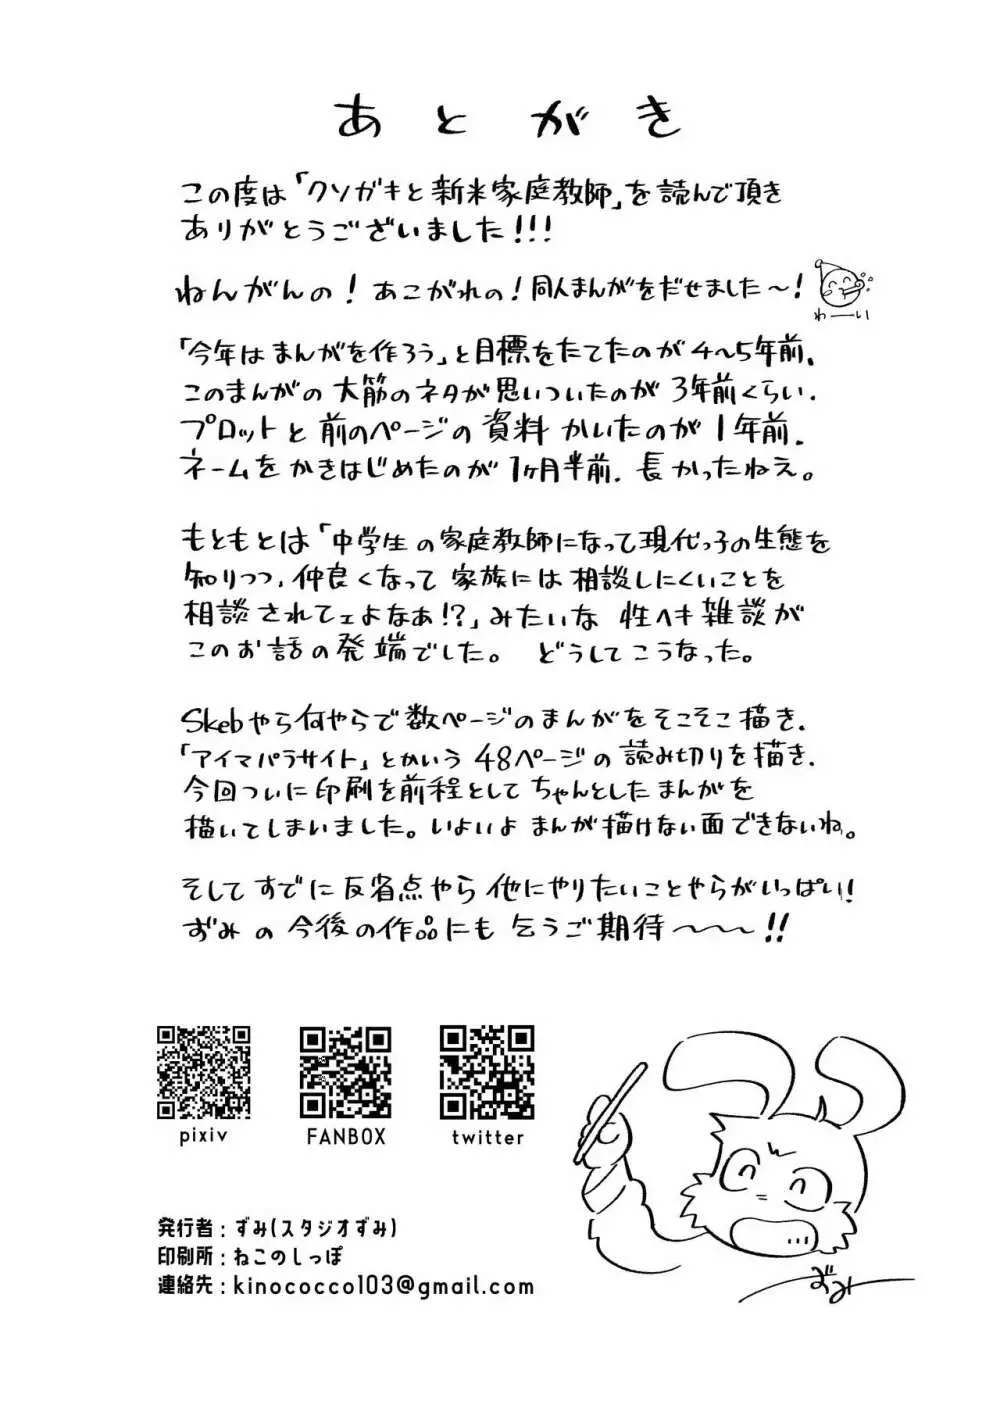 あとがき
この度は「クソガキと新米家庭教師」を読んで頂き
ありがとうございました!!!
ねんがんの!あこがれの!同人まんがをだせました〜!
わーい
「今年はまんがを作ろう」と目標をたてたのが4〜5年前.
このまんがの大筋のネタが思いついたのが3年前くらい.
プロットと前のページの資料かいたのが1年前.
ネームをかきはじめたのが1ヶ月半前.長かったねえ。
もともとは「中学生の家庭教師になって現代っ子の生態を
知りつつ,仲良くなって家族には相談しにくいことを
相談されてェよなぁ!?」みたいな性ヘキ雑談が
このお話の発端でした。どうしてこうなった。
Skebやら何やらで数ページのまんがをそこそこ描き.
「アイマパラサイト」とかいう48ページの読み切りを描き.
今回ついに印刷を前程としてちゃんとしたまんがを
描いてしまいました。いよいよまんが描けない面できないね。
そしてすでに反省点やら他にやりたいことやらがいっぱい!
ずみの今後の作品にも乞うご期待〜〜〜!!
pixiv
FANBOX
twitter
発行者:ずみ(スタジオずみ)
印刷所:ねこのしっぽ
連絡先:kinococco103@gmail.com
ずみ